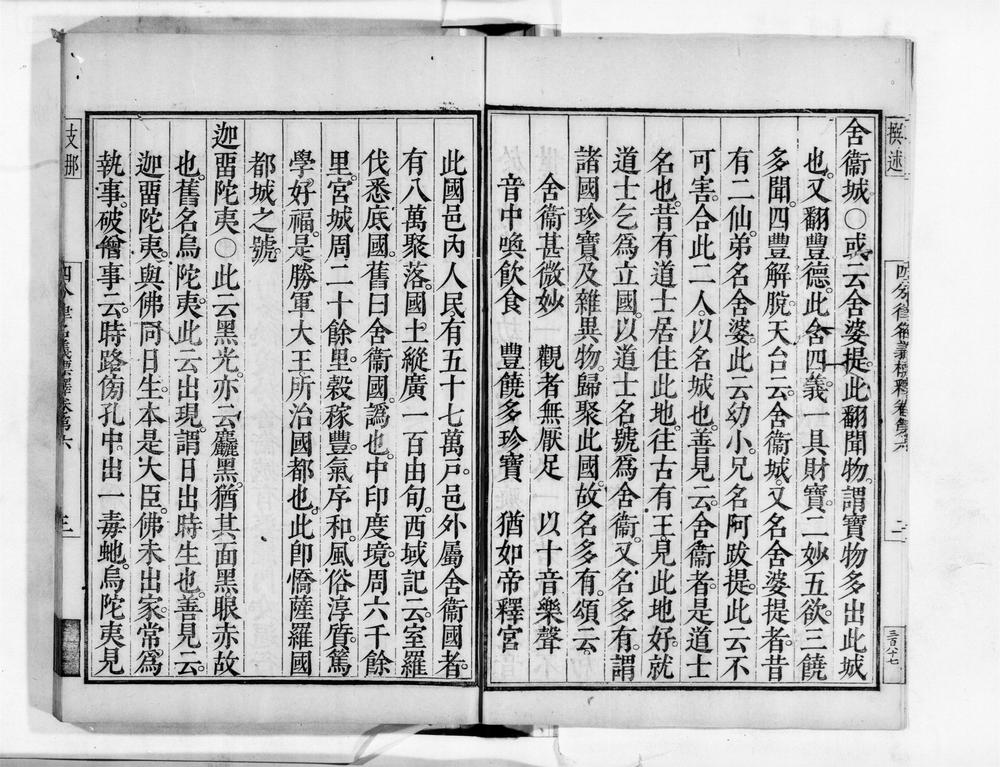 舍衞城〇或云舍婆提此翻聞物謂寶物多出此城
也又翻豐德此舍四義一具財寶二妙五欲三饒
多聞四豐解脫天台云舍衞城又名舍婆提者昔
有二仙弟名舍婆此云幼小兄名阿跋提此云不
可害合此二人以名城也善見云舍衞者是道士
名也昔有道士居住此地往古有王見此地好就
道士乞爲立國以道士名號爲舍衞又名多有謂
諸國珍寶及雜異物歸聚此國故名多有頌云
舍衞甚微妙 觀者無厭足 以十音樂聲
音中喚飮食 豐饒多珍寶 猶如帝釋宮
此國邑內人民有五十七萬戸邑外屬舍衞國者
有八萬聚落國土縱廣一百由旬西域記云室羅
伐悉底國舊曰舍衞國譌也中印度境周六千餘
里宮城周二十餘里穀稼豐氣序和風俗淳質篤
學好福是勝軍大王所治國都也此卽憍薩羅國
都城之號
迦畱陀夷〇此云黑光亦云麤黑猶其面黑眼赤故
也舊名烏陀夷此云出現謂日出時生也善見云
迦畱陀夷與佛同日生本是大臣佛未出家常爲
執事破僧事云時路傍孔中出一毒虵烏陀夷見
撰述
三百六十七
支那
四分律名義標釋卷第六
三